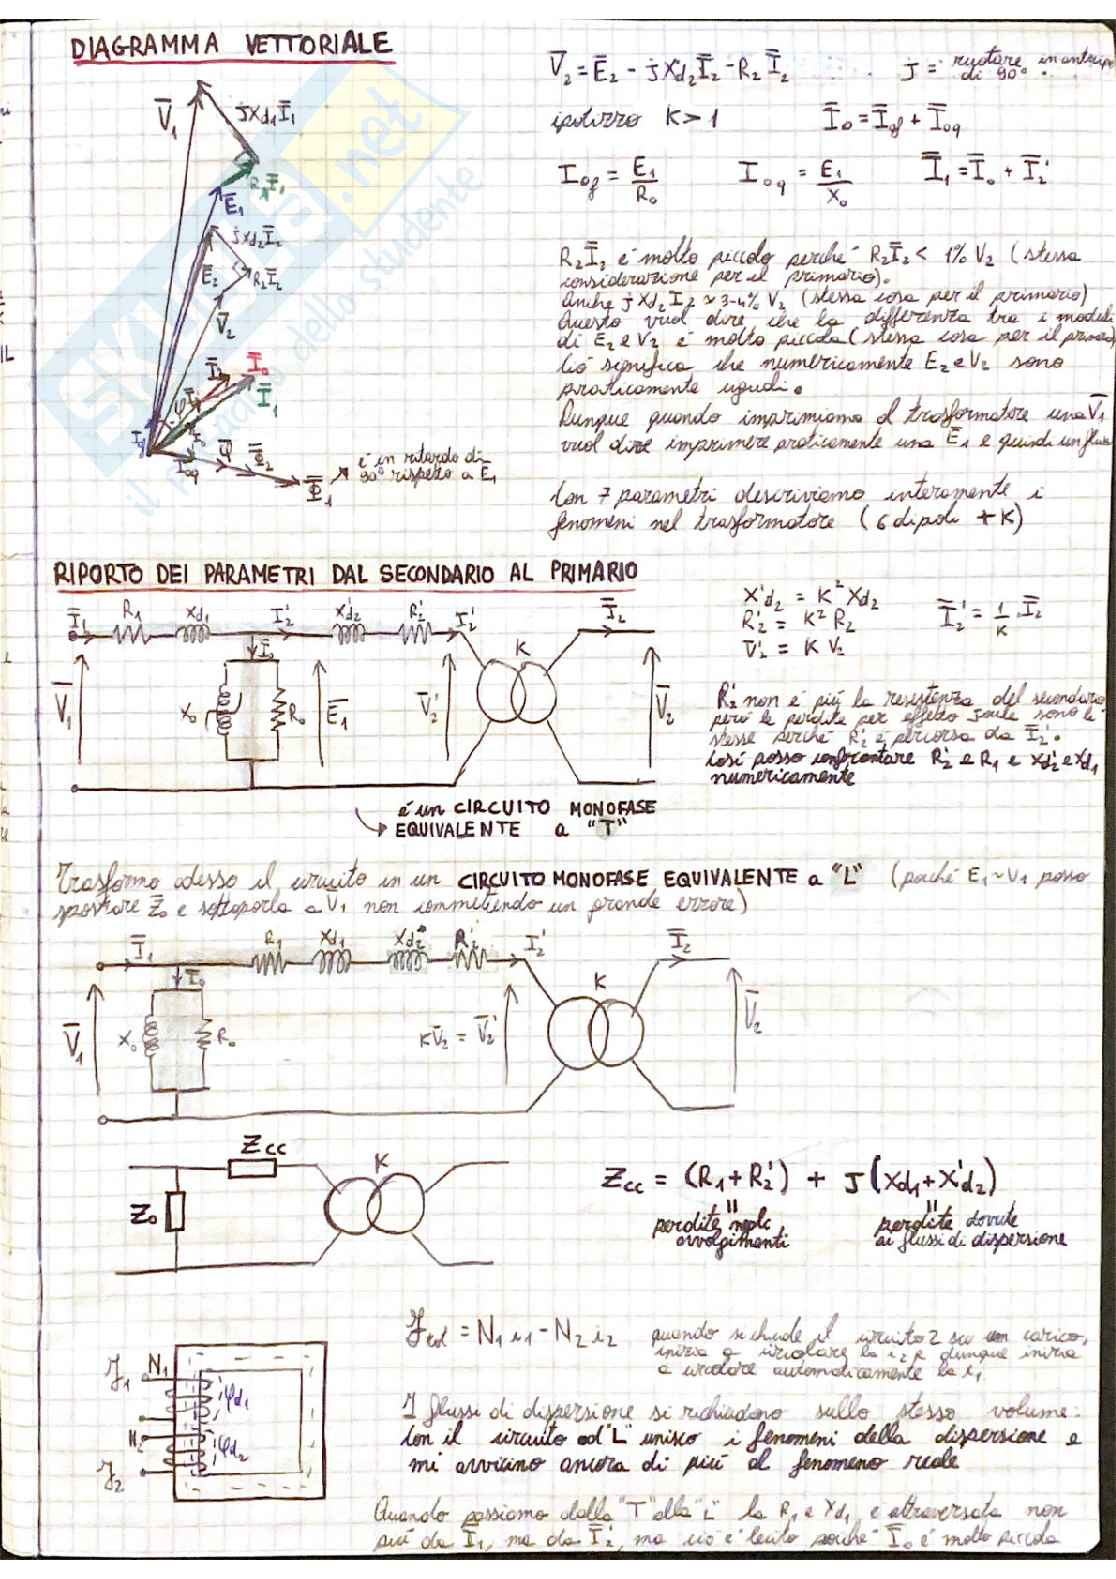 DIAGRAMMA VETTORIALE
V̄₂ = Ē₂ - jXd₂Ī₂ - R₂Ī₂
J = ruotare in anticipo
di 90°
ipotizzo K > 1
Ī₀ = Ī₀f + Ī₀q
I₀f = E₁/R₀
I₀q = E₁/X₀
Ī₁ = Ī₀ + Ī₂'
V̄₁
jXd₁Ī₁
R₁Ī₁
Ē₁
jXd₂Ī₂
Ē₂
R₂Ī₂
V̄₂
Ī₂
Ī₀
Ī₁
φ
I₀q
Φ̄
Φ̄₂
Φ̄₁
è in ritardo di
90° rispetto a E₁
R₂Ī₂ è molto piccolo perché R₂Ī₂ < 1% V₂ (stessa
considerazione per il primario).
Anche jXd₂I₂ ≈ 3-4% V₂ (stessa cosa per il primario)
Questo vuol dire che la differenza tra i moduli
di E₂ e V₂ è molto piccola (stessa cosa per il primario)
Ciò significa che numericamente E₂ e V₂ sono
praticamente uguali.
Dunque quando imprimiamo al trasformatore una V̄₁
vuol dire imprimere praticamente una Ē₁ e quindi un flusso
Con 7 parametri descriviamo interamente i
fenomeni nel trasformatore (6 dipoli + K)
RIPORTO DEI PARAMETRI DAL SECONDARIO AL PRIMARIO
Ī₁ R₁ Xd₁ I₂' Xd₂' R₂' I₂' Ī₂
Ī₀
K
V̄₁ X₀ R₀ Ē₁ V̄₂' V̄₂
X'd₂ = K² Xd₂
R₂' = K² R₂
V̄₂' = K V₂
Ī₂' = 1/K Ī₂
R₂' non è più la resistenza del secondario
però le perdite per effetto Joule sono le
stesse perché R₂' è percorsa da Ī₂'.
Così posso confrontare R₂' e R₁ e Xd₂' e Xd₁
numericamente
è un CIRCUITO MONOFASE
EQUIVALENTE a "T"
Trasformo adesso il circuito in un CIRCUITO MONOFASE EQUIVALENTE a "L" (poiché E₁ ~ V₁ posso
spostare Z̄₀ e sottoporla a V̄₁ non commettendo un grande errore)
Ī₁ R₁ Xd₁ Xd₂' R₂' I₂' Ī₂
Ī₀
K
V̄₁ X₀ R₀ KV̄₂ = V̄₂' V̄₂
Zcc
K
Z₀
Zcc = (R₁ + R₂') + J(Xd₁ + X'd₂)
perdite negli
avvolgimenti
perdite dovute
ai flussi di dispersione
ℱtot = N₁i₁ - N₂i₂
quando si chiude il circuito 2 su un carico,
inizia a circolare la i₂ e dunque inizia
a circolare automaticamente la i₁
ℱ₁ N₁ φd₁
N₂ φd₂
ℱ₂
I flussi di dispersione si richiudono sullo stesso volume:
con il circuito ad "L" unisco i fenomeni della dispersione e
mi avvicino ancora di più al fenomeno reale
Quando passiamo dalla "T" alla "L" la R₁ e Xd₁ è attraversata non
più da Ī₁, ma da Ī₂', ma ciò è lecito poiché Ī₀ è molto piccola